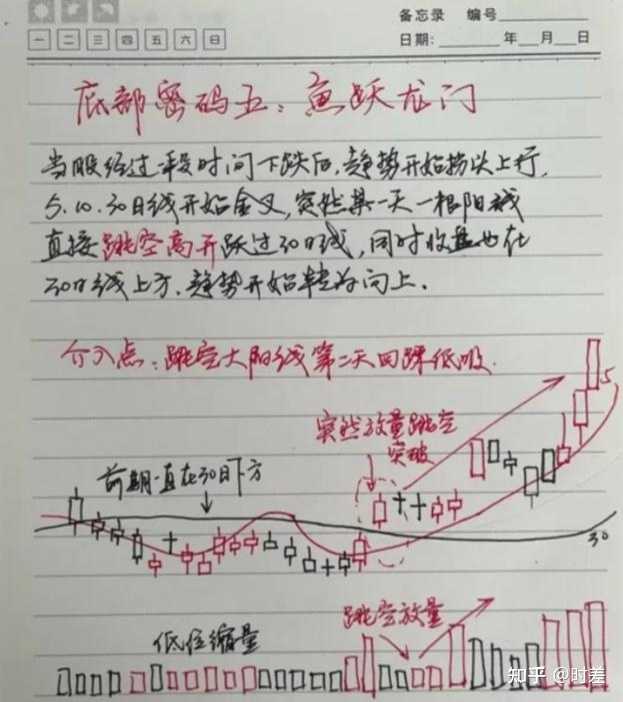 备忘录 编号
一 二 三 四 五 六 日
日期: 年 月 日
底部密码五:鱼跃龙门
当股经过一段时间下跌后,趋势开始拐头上行,
5.10.30日线开始金叉,突然某一天一根阳线
直接跳空高开跃过30日线,同时收盘也在
30日线上方.趋势开始转为向上.
介入点:跳空大阳线第二天回踩低吸.
5
突然放量跳空
突破
前期一直在30日下方
30
跳空放量
低位缩量
知乎 @时差